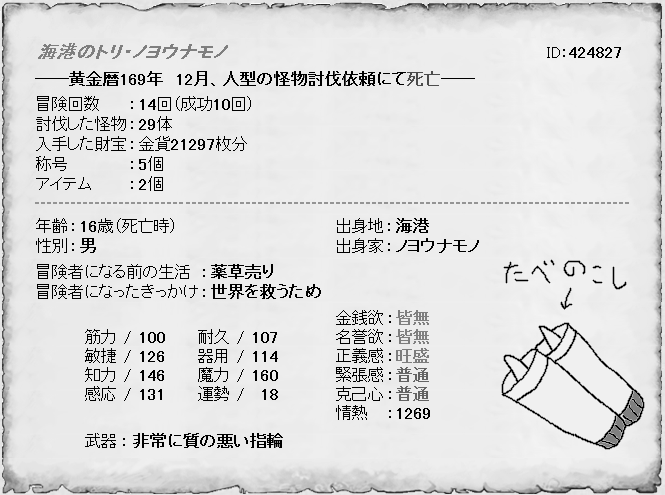 海港のトリ・ノヨウナモノ ID:424827
――黄金暦169年 12月、人型の怪物討伐依頼にて死亡――
冒険回数 :14回(成功10回)
討伐した怪物:29体
入手した財宝:金貨21297枚分
称号 :5個
アイテム :2個
年齢:16歳(死亡時) 出身地:海港
性別:男 出身家:ノヨウナモノ
冒険者になる前の生活 :薬草売り
冒険者になったきっかけ:世界を救うため
たべのこし
筋力 / 100 耐久 / 107
敏捷 / 126 器用 / 114
知力 / 146 魔力 / 160
感応 / 131 運勢 / 18
金銭欲:皆無
名誉欲:皆無
正義感:旺盛
緊張感:普通
克己心:普通
情熱 :1269
武器:非常に質の悪い指輪